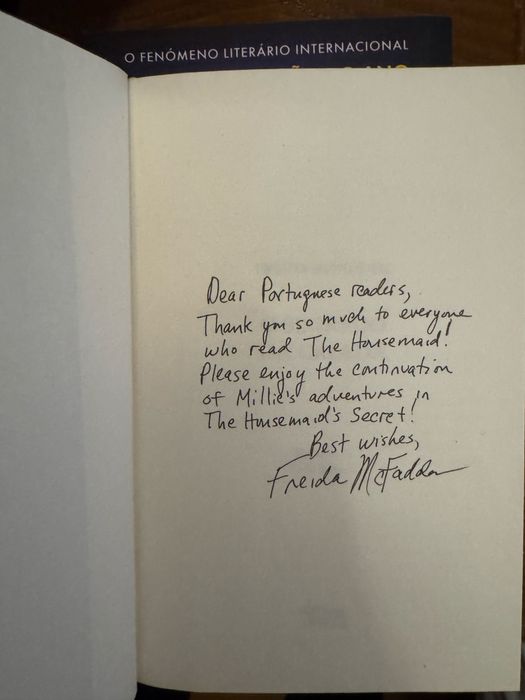 O FENÓMENO LITERÁRIO INTERNACIONAL
Dear Portuguese readers,
Thank you so much to everyone
who read The Housemaid!
Please enjoy the continuation
of Millie's adventures in
The Housemaid's Secret!
Best wishes,
Freida McFadden